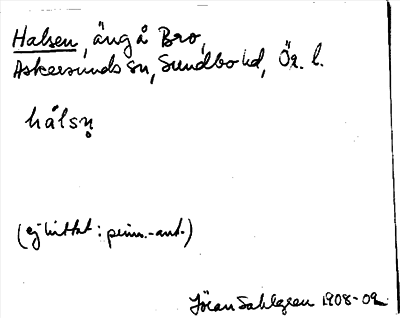 Halsen, äng å Bro,
Askersunds sn, Sundbo hd, Ör. l.
hálsn̥
(ej hittat: prim.-ant.)
Jöran Sahlgren 1908-09